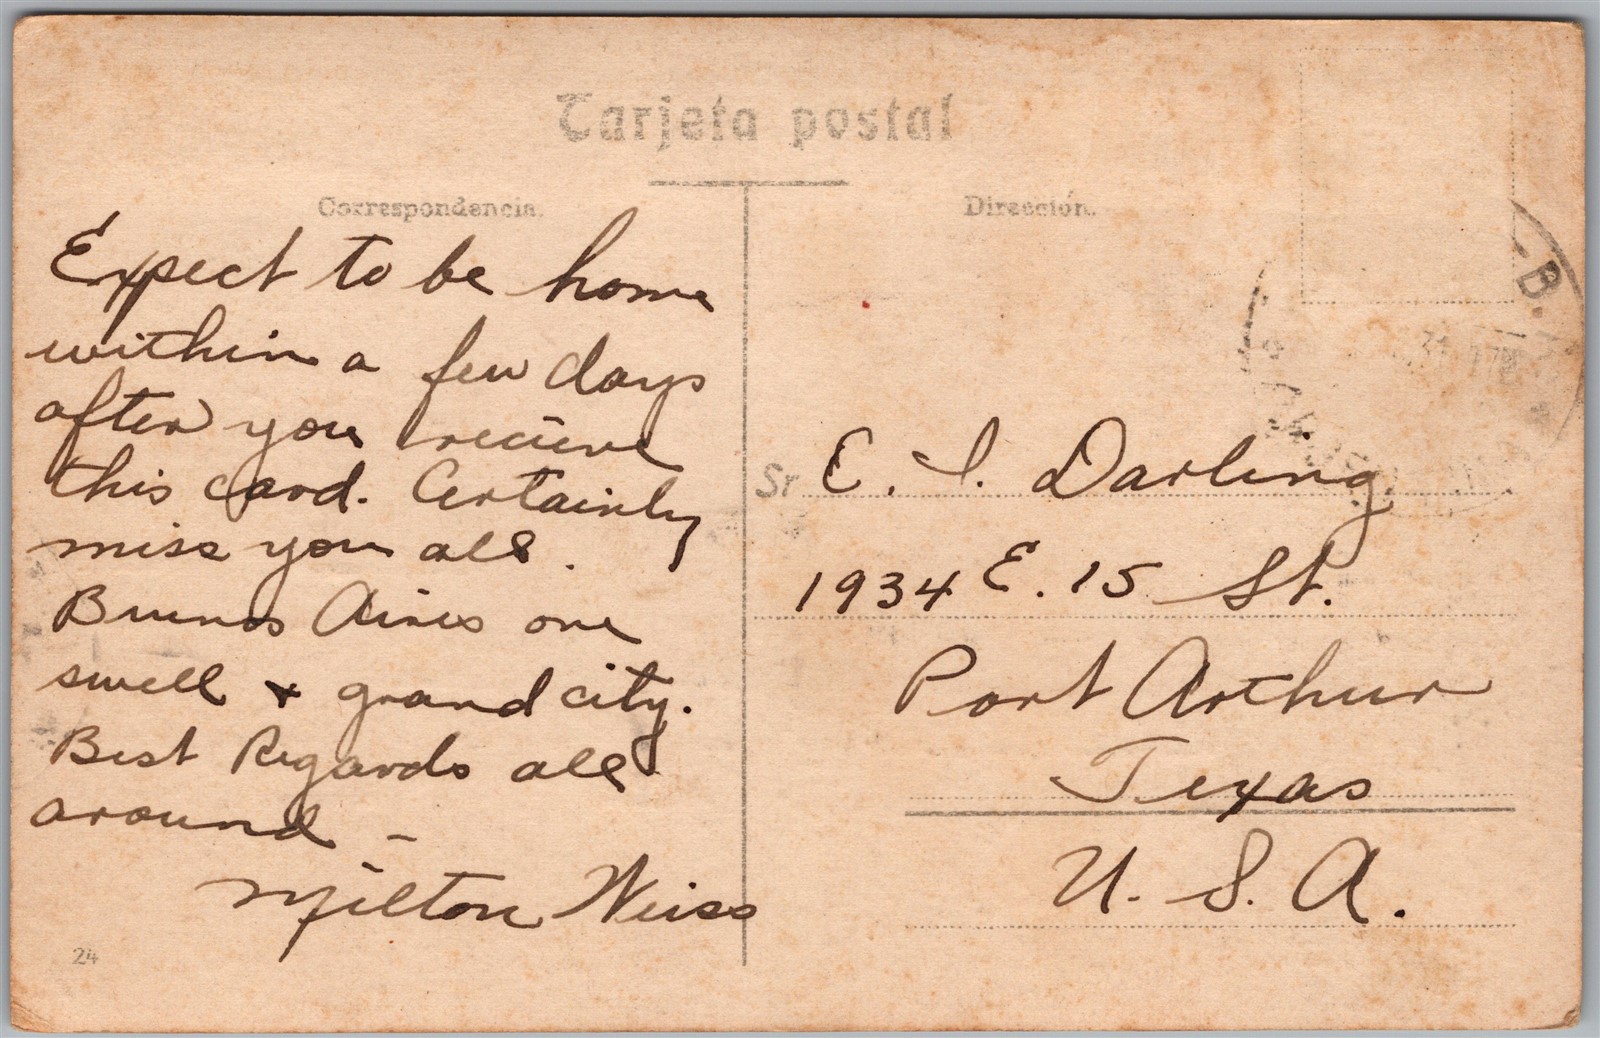 Tarjeta postal
Correspondencia.
Expect to be home
within a few days
after you recieve
this card. Certainly
miss you all.
Buenos Aires one
swell + grand city.
Best Regards all
around -
Milton Weiss
24
Dirección.
B.
31
Sr E. I. Darling
1934 E. 15 St.
Port Arthur
Texas
U. S. A.